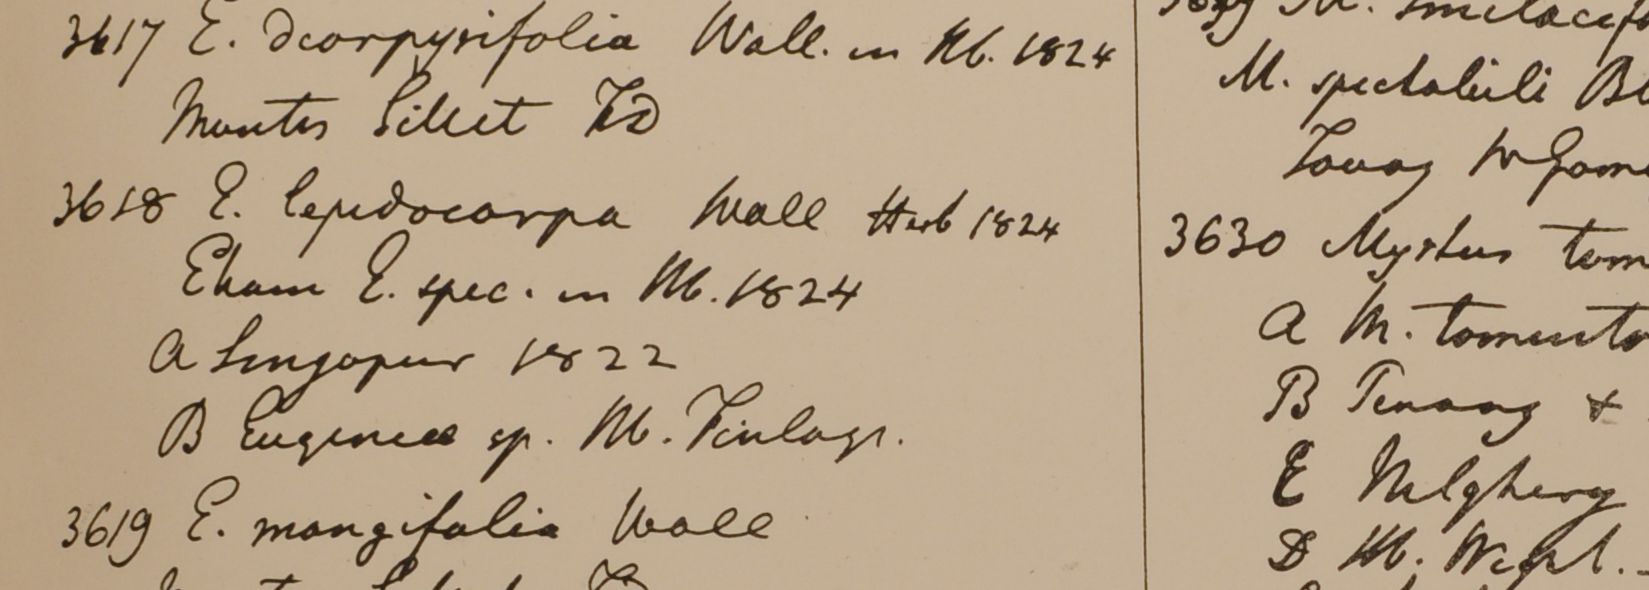 3617 E. diospyrifolia Wall. in Hb. 1824
Montes Sillet FD
3618 E. lepidocarpa Wall Herb 1824
E. spec. in Hb. 1824
A Singapur 1822
B Eugeniae sp. Hb. Finlays.
3619 E. mangifolia Wall
M. spectabili Bl
3630 Myrtus tom
A M. tomento
B Penang &
E Nilghery
D Hb. Wight.